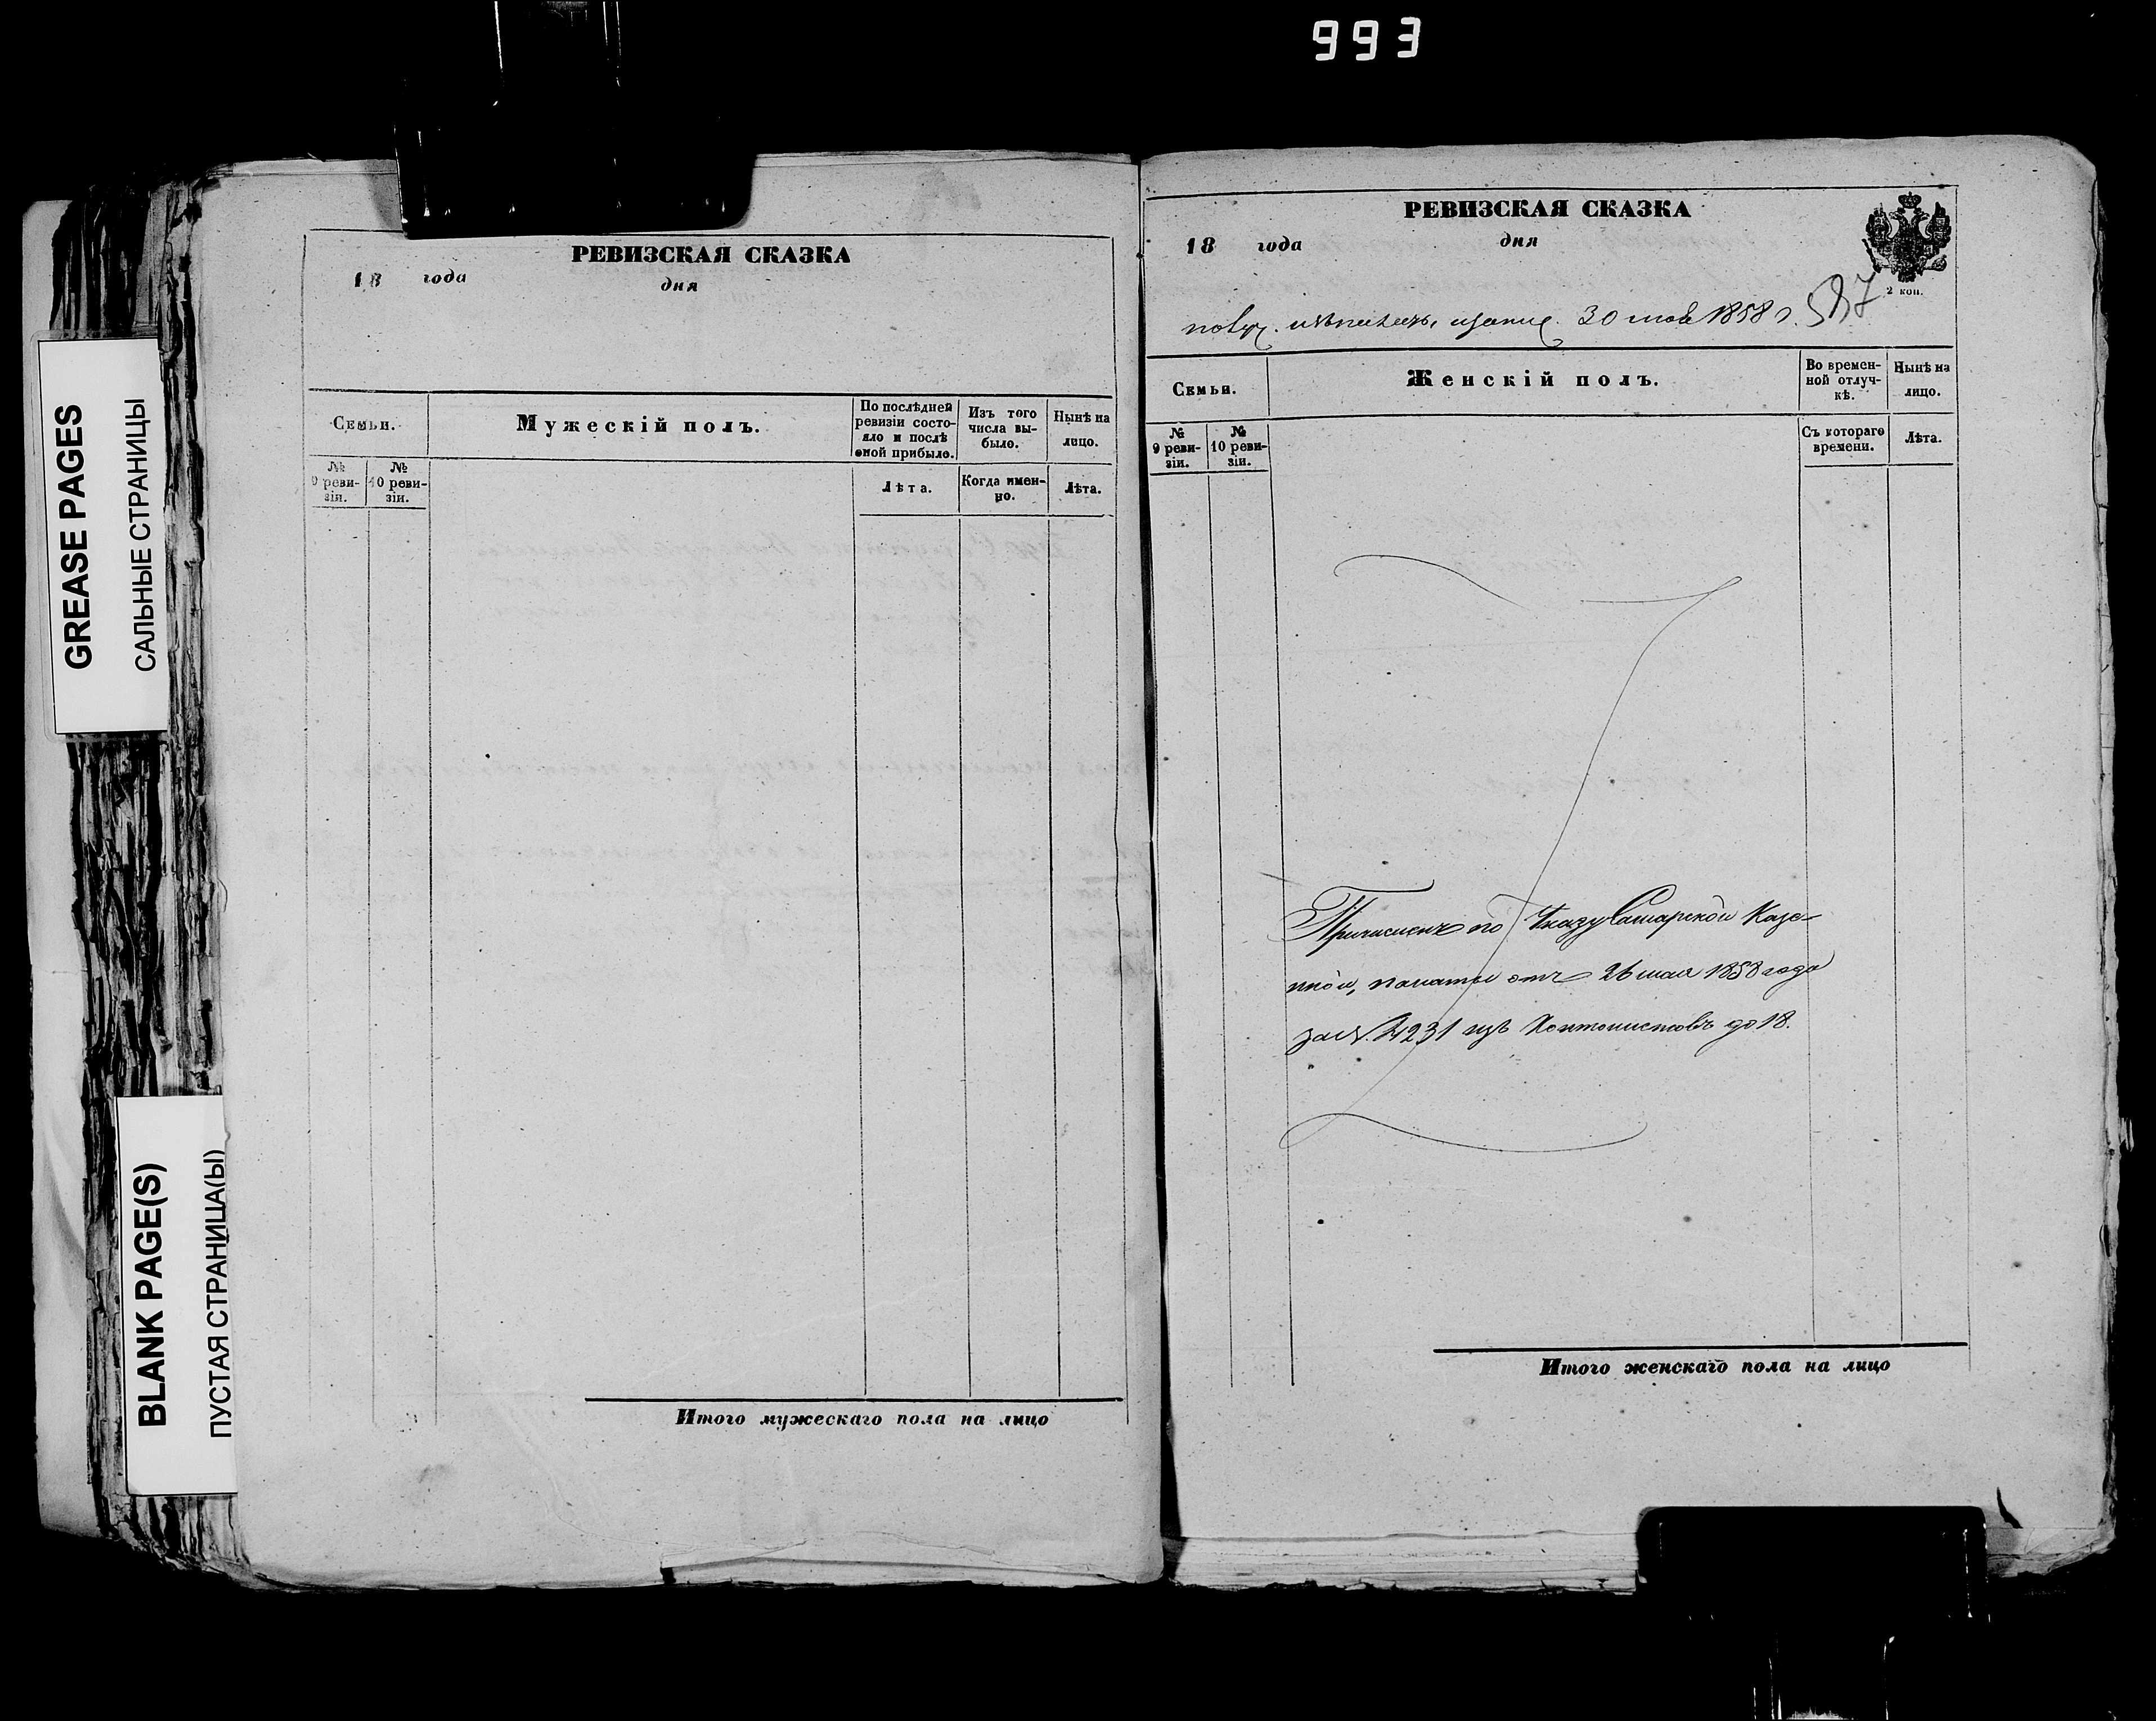 993
GREASE PAGES
САЛЬНЫЕ СТРАНИЦЫ
BLANK PAGE(S)
ПУСТАЯ СТРАНИЦА(Ы)
РЕВИЗСКАЯ СКАЗКА
18 года дня
Семьи.
Мужескій полъ.
По послѣдней ревизіи состояло и послѣ оной прибыло.
Изъ того числа выбыло.
Нынѣ на лицо.
№ 9 ревизіи.
№ 10 ревизіи.
Лѣта.
Когда именно.
Лѣта.
Итого мужескаго пола на лицо
РЕВИЗСКАЯ СКАЗКА
18 года дня
2 коп.
587
30 1858 г.
Семьи.
Женскій полъ.
Во временной отлучкѣ.
Нынѣ на лицо.
№ 9 ревизіи.
№ 10 ревизіи.
Съ котораго времени.
Лѣта.
Причисленъ по Указу Самарской Казе-
нной, палаты отъ 26 мая 1858 года
за №. 4231 изъ Кантонистовъ до 18.
Итого женскаго пола на лицо